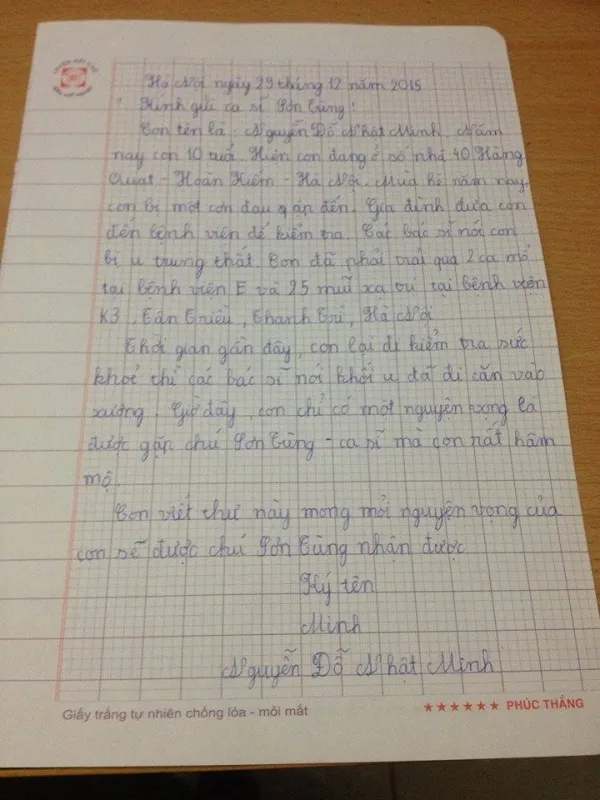 Hà Nội ngày 29 tháng 12 năm 2015
Kính gửi ca sĩ Sơn Tùng!
Con tên là: Nguyễn Đỗ Nhật Minh. Năm
nay con 10 tuổi. Hiện con đang ở số nhà 40 Hàng
Quạt - Hoàn Kiếm - Hà Nội. Mùa hè năm nay,
con bị một cơn đau quặn đến. Gia đình đưa con
đến bệnh viện để kiểm tra. Các bác sĩ nói con
bị u trung thất. Con đã phải trải qua 2 ca mổ
tại bệnh viện E và 25 mũi xạ trị tại bệnh viện
K3, Tân Triều, Thanh Trì, Hà Nội
Thời gian gần đây, con lại đi kiểm tra sức
khoẻ thì các bác sĩ nói khối u đã di căn vào
xương. Giờ đây, con chỉ có một nguyện vọng là
được gặp chú Sơn Tùng - ca sĩ mà con rất hâm
mộ.
Con viết thư này mong mỏi nguyện vọng của
con sẽ được chú Sơn Tùng nhận được
Ký tên
Minh
Nguyễn Đỗ Nhật Minh
Giấy trắng tự nhiên chống lóa - mỏi mắt
★★★★★★ PHÚC THẮNG